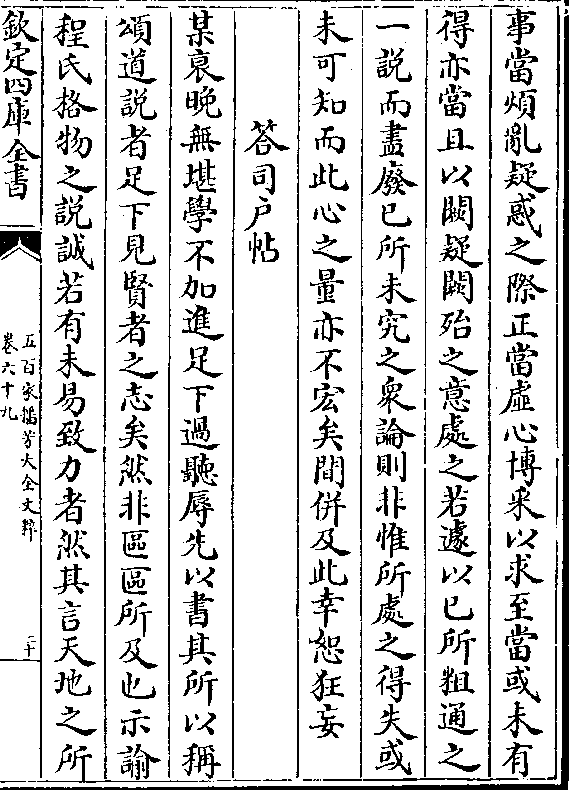 事當煩亂疑惑之際正當虛心博采以求至當或未有
得亦當且以闕疑闕殆之意處之若遽以已所粗通之
一說而盡廢已所未究之衆論則非惟所處之得失或
未可知而此心之量亦不宏矣間併及此幸恕狂妄
答司户帖
某衰晚無堪學不加進足下過聽辱先以書其所以稱
頌道說者足下見賢者之志矣然非區區所及也示諭
程氏格物之說誠若有未易致力者然其言天地之所
欽定四庫全書
五百家播芳大全文粹
卷六十九
二十